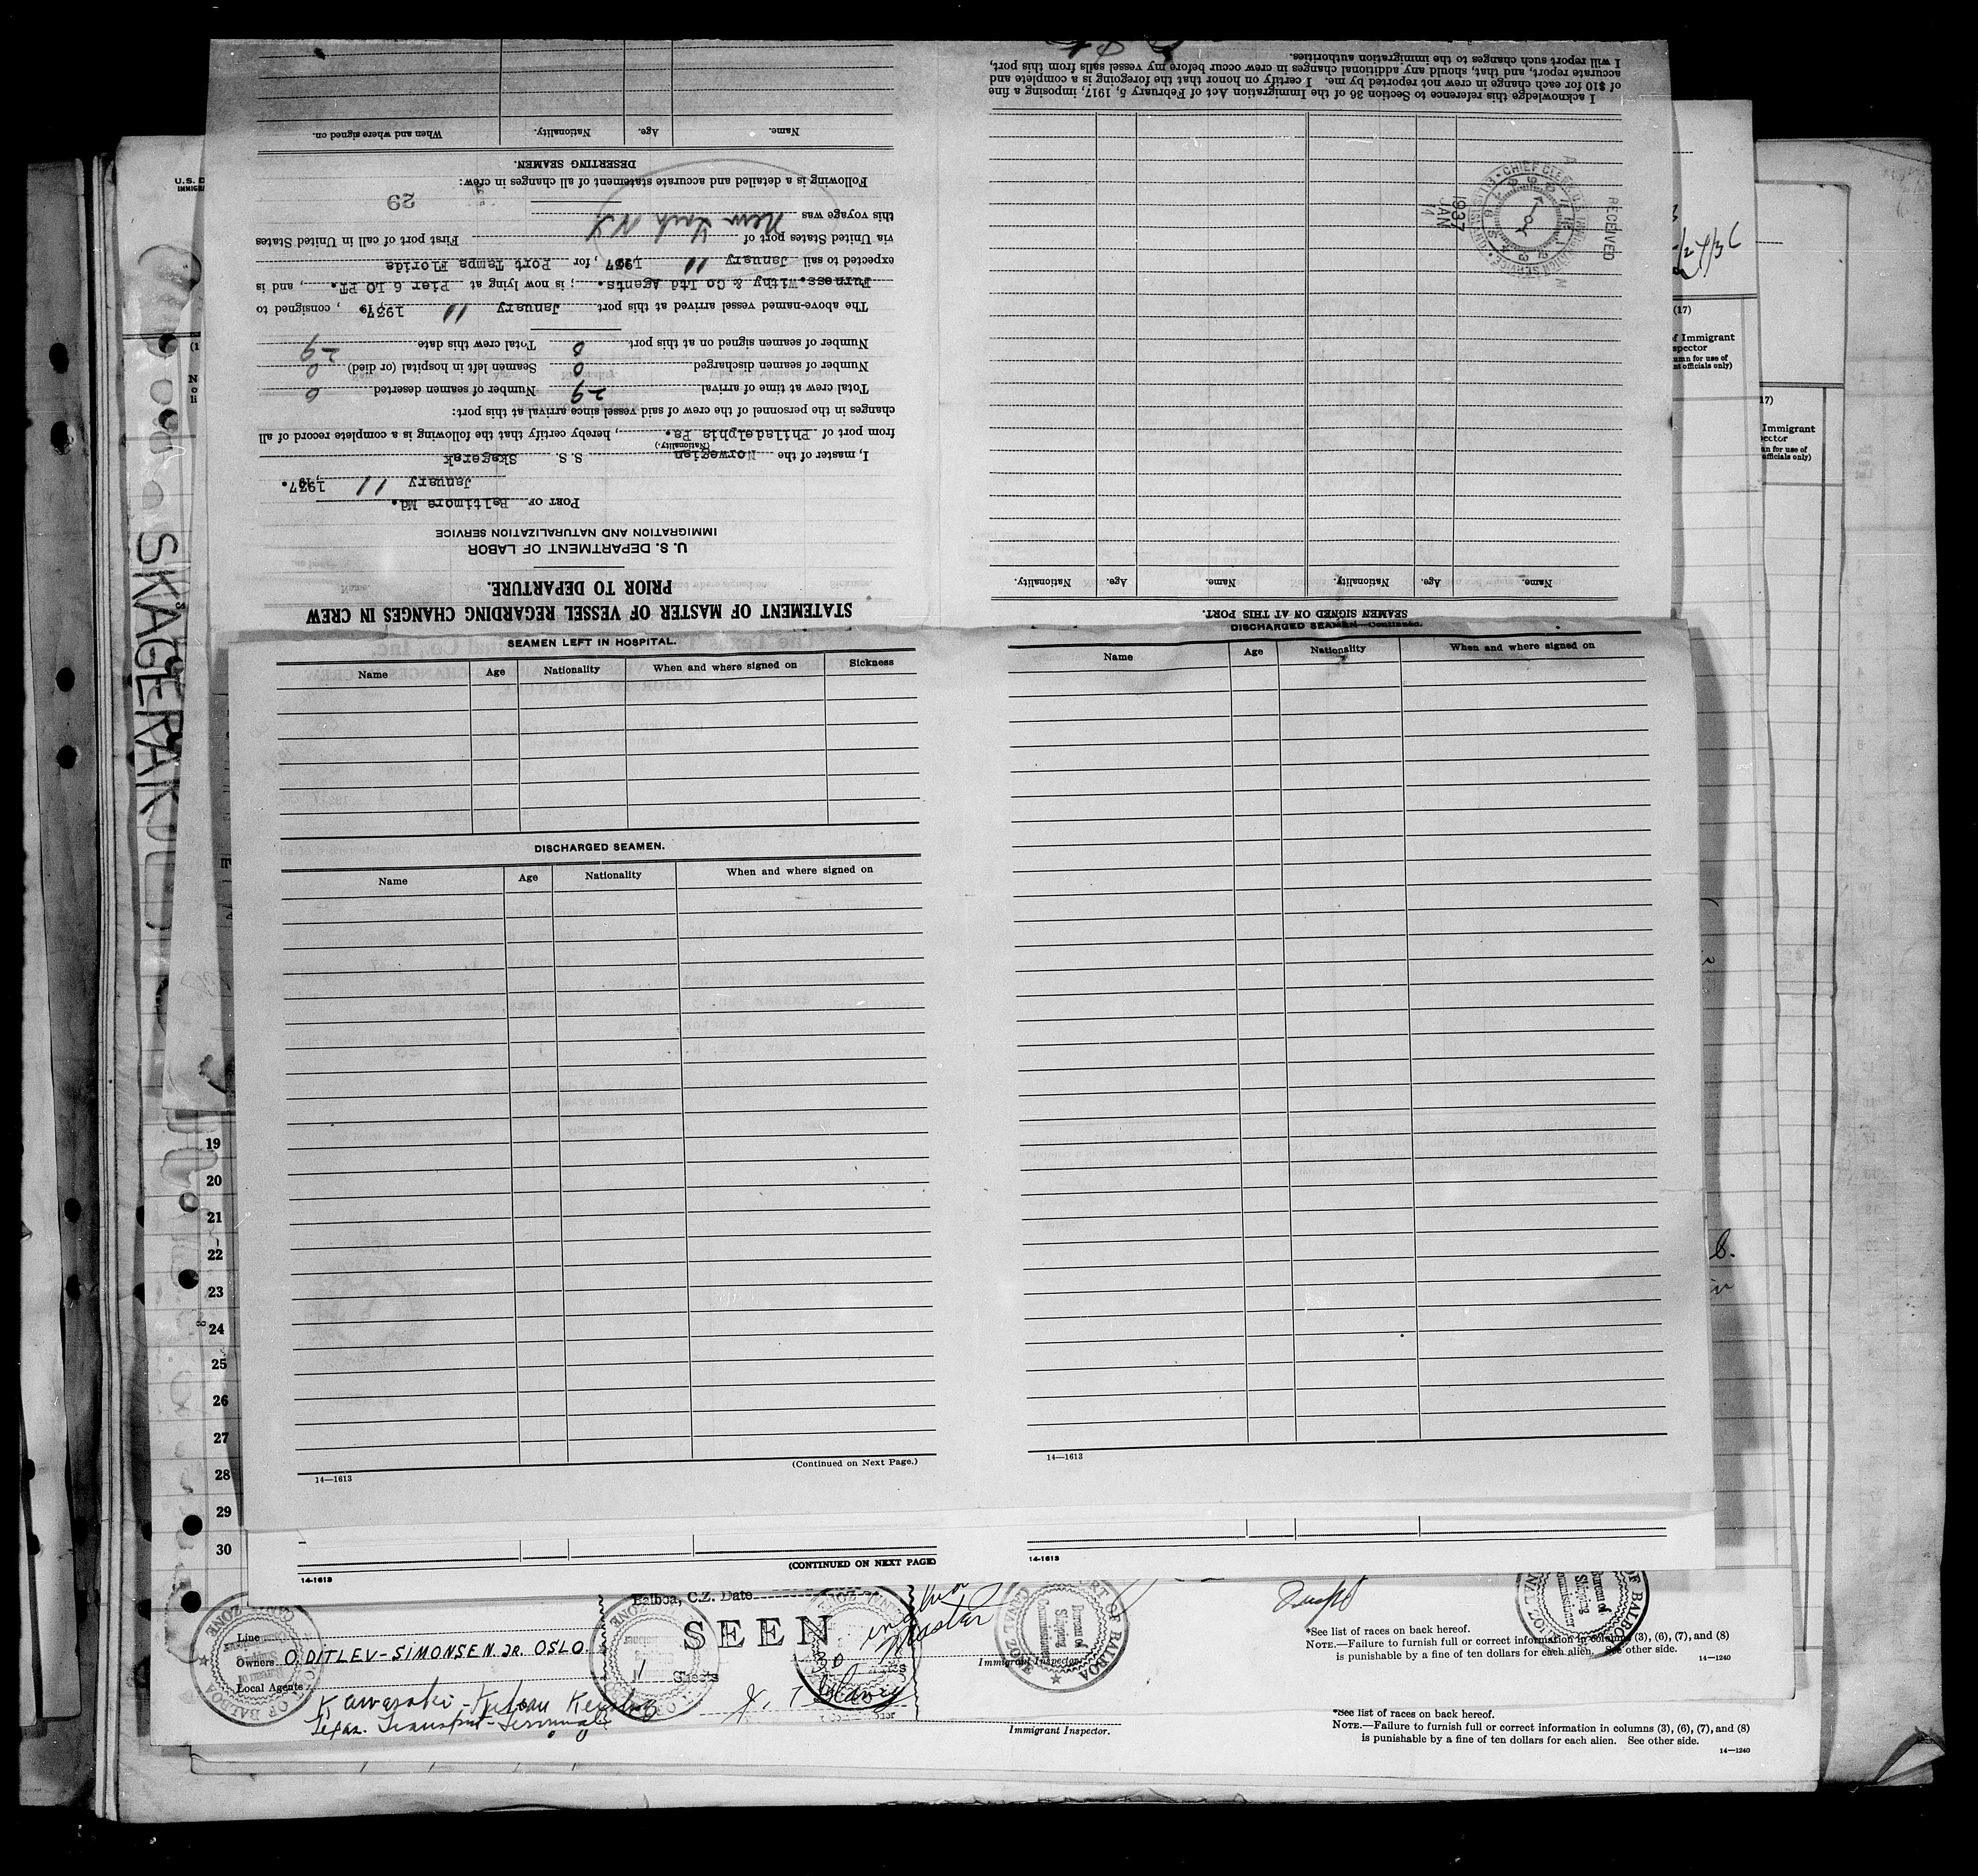 STATEMENT OF MASTER OF VESSEL REGARDING CHANGES IN CREW
PRIOR TO DEPARTURE.
U. S. DEPARTMENT OF LABOR
IMMIGRATION AND NATURALIZATION SERVICE
PORT OF Baltimore Md.
January 11 , 1937.
I, master of the Norwegian S.S. Skagerak
(Nationality.)
from port of Philadelphia Pa. , hereby certify that the following is a complete record of all
changes in the personnel of the crew of said vessel since arrival at this port:
Total crew at time of arrival 29 Number of seamen deserted 0
Number of seamen discharged 0 Seamen left in hospital (or died) 0
Number of seamen signed on at this port 0 Total crew this date 29
The above-named vessel arrived at this port January 11 1937. , consigned to
Furness. Withy & Co Ltd Agents. ; is now lying at Pier 6 LO PT. , and is
expected to sail January 11 , 1937 , for Port Tampa Florida
via United States port of First port of call in United States
this voyage was New York N.Y.
29
Following is a detailed and accurate statement of all changes in crew:
DESERTING SEAMEN.
Name. Age. Nationality. When and where signed on.
SEAMEN SIGNED ON AT THIS PORT.
Name. Age. Nationality. Name. Age. Nationality.
I acknowledge this reference to Section 36 of the Immigration Act of February 5, 1917, imposing a fine
of $10 for each change in crew not reported by me. I certify on honor that the foregoing is a complete and
accurate report, and that, should any additional changes in crew occur before my vessel sails from this port,
I will report such changes to the immigration authorities.
RECEIVED
1937
JAN
14
SKAGERAK
SEAMEN LEFT IN HOSPITAL.
Name Age Nationality When and where signed on Sickness
DISCHARGED SEAMEN.
Name Age Nationality When and where signed on
14—1613
(Continued on Next Page.)
DISCHARGED SEAMEN—Continued.
Name Age Nationality When and where signed on
14—1613
(CONTINUED ON NEXT PAGE)
14-1613
14-1613
19
20
21
22
23
24
25
26
27
28
29
30
(17)
of Immigrant
(17)
Immigrant
Line
Owners O. DITLEV-SIMONSEN. JR. OSLO.
Local Agents
Balboa, C.Z. Date
SEEN
1 Sheets
Immigrant Inspector.
*See list of races on back hereof.
NOTE.—Failure to furnish full or correct information in columns (3), (6), (7), and (8)
is punishable by a fine of ten dollars for each alien. See other side.
14—1240
Immigrant Inspector.
*See list of races on back hereof.
NOTE.—Failure to furnish full or correct information in columns (3), (6), (7), and (8)
is punishable by a fine of ten dollars for each alien. See other side.
14—1240